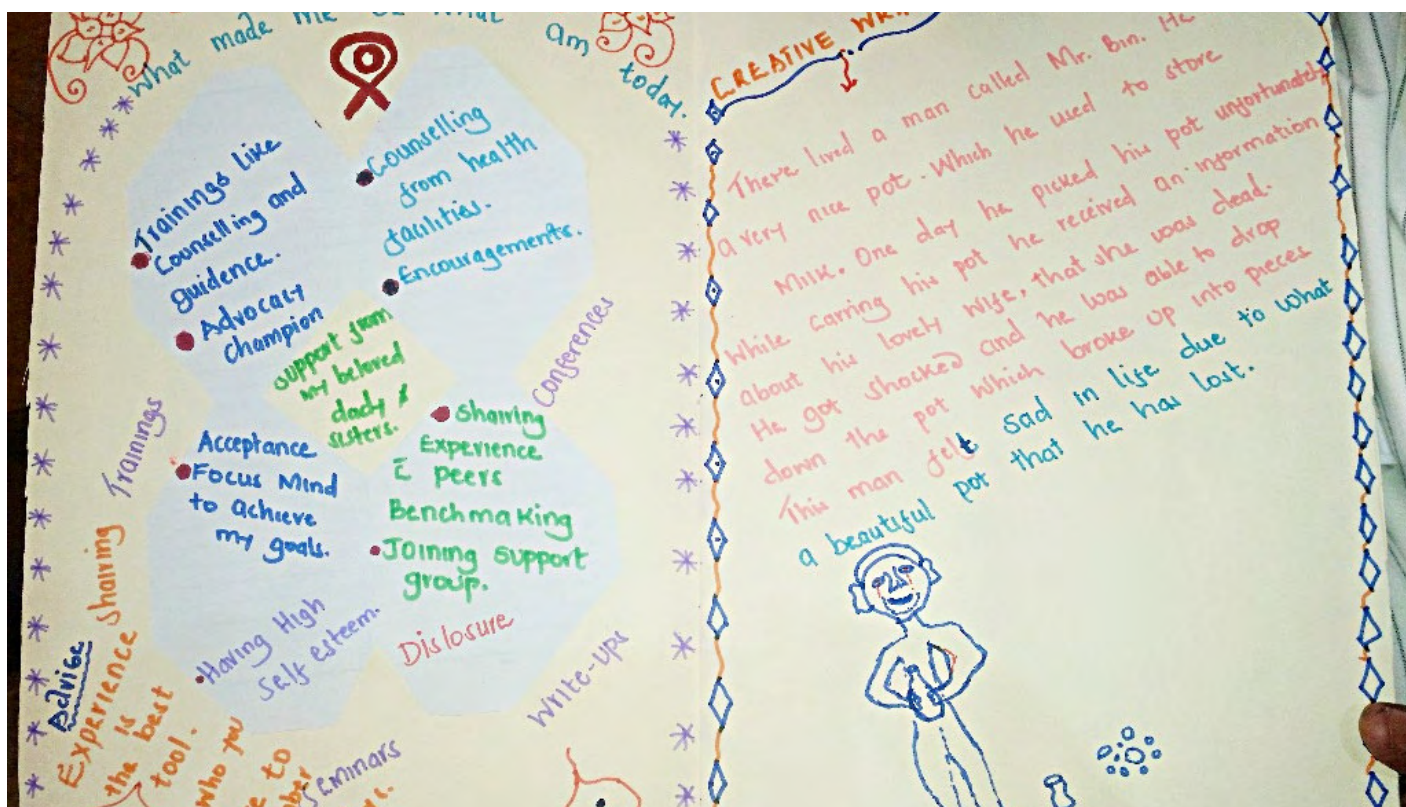 What made me what
am
today.
Trainings like
Counselling and
guidence.
Advocacy
Champion
Counselling
from health
facilities.
Encouragements.
Support from
my beloved
dady &
sisters.
Conferences
Trainings
Acceptance
Focus Mind
to achieve
my goals.
Shairing
Experience
c̄ peers
Benchmaking
Joining support
group.
Having High
Self esteem.
Disclosure
Write-Ups
Seminars
Advise
Experience Shairing
is
the best
tool.
who you
to
CREATIVE
There lived a man called Mr. Bin. He
a very nice pot. Which he used to store
Milk. One day he picked his pot unfortunately
While carring his pot he received an information
about his lovely wife, that she was dead.
He got shocked and he was able to drop
down the pot which broke up into pieces
This man felt sad in life due to what
a beautiful pot that he has lost.